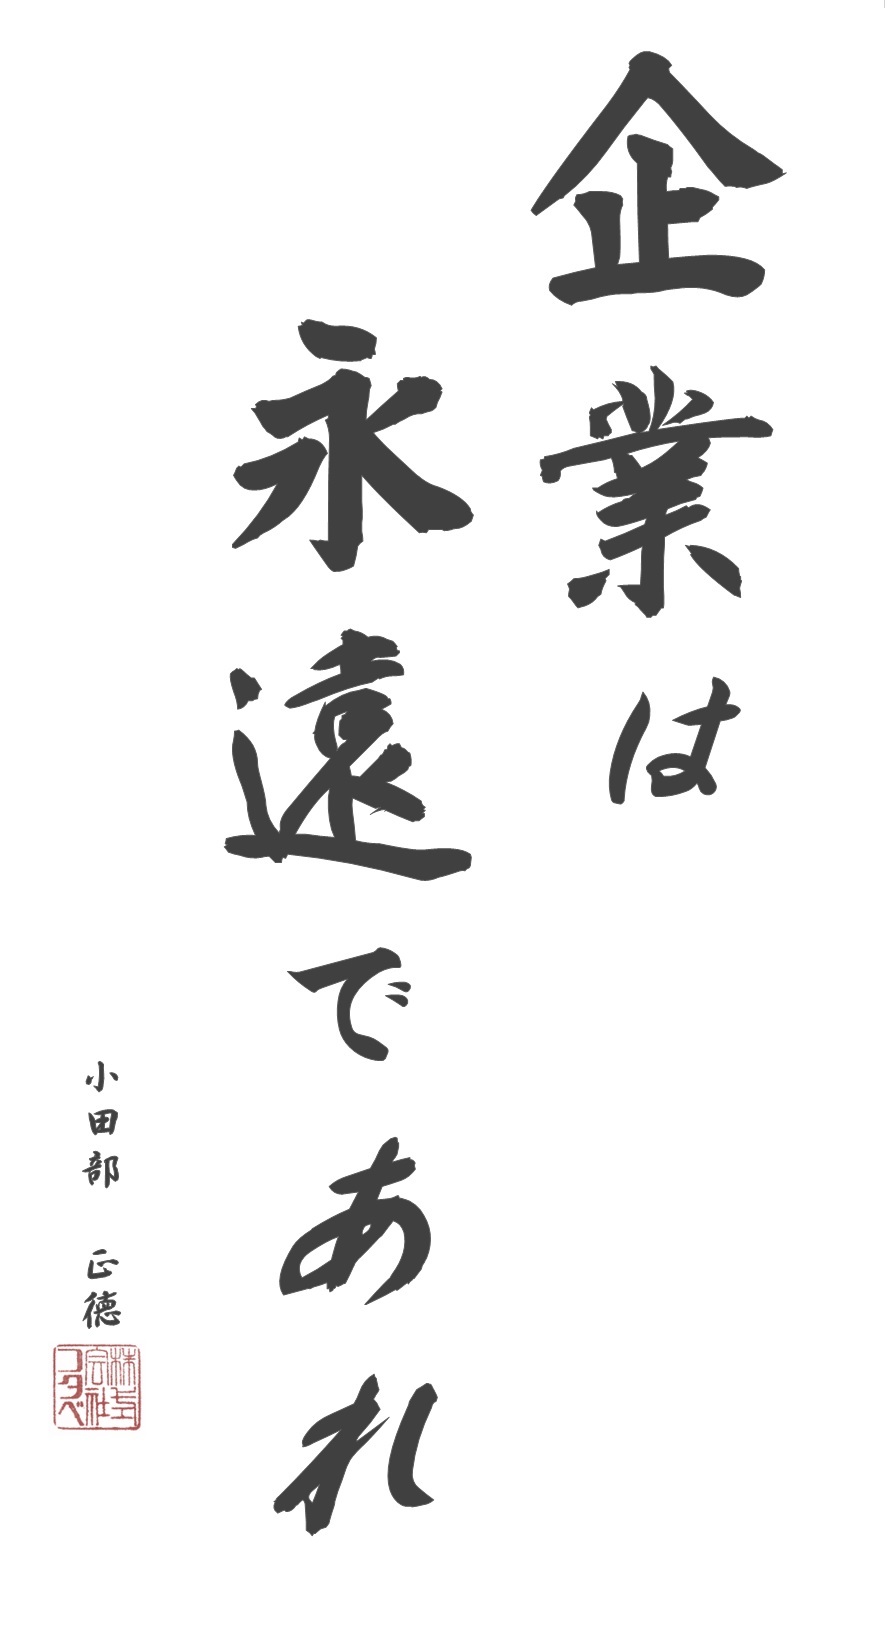 企業は
永遠であれ
小田部 正徳
株式
会社
コタベ